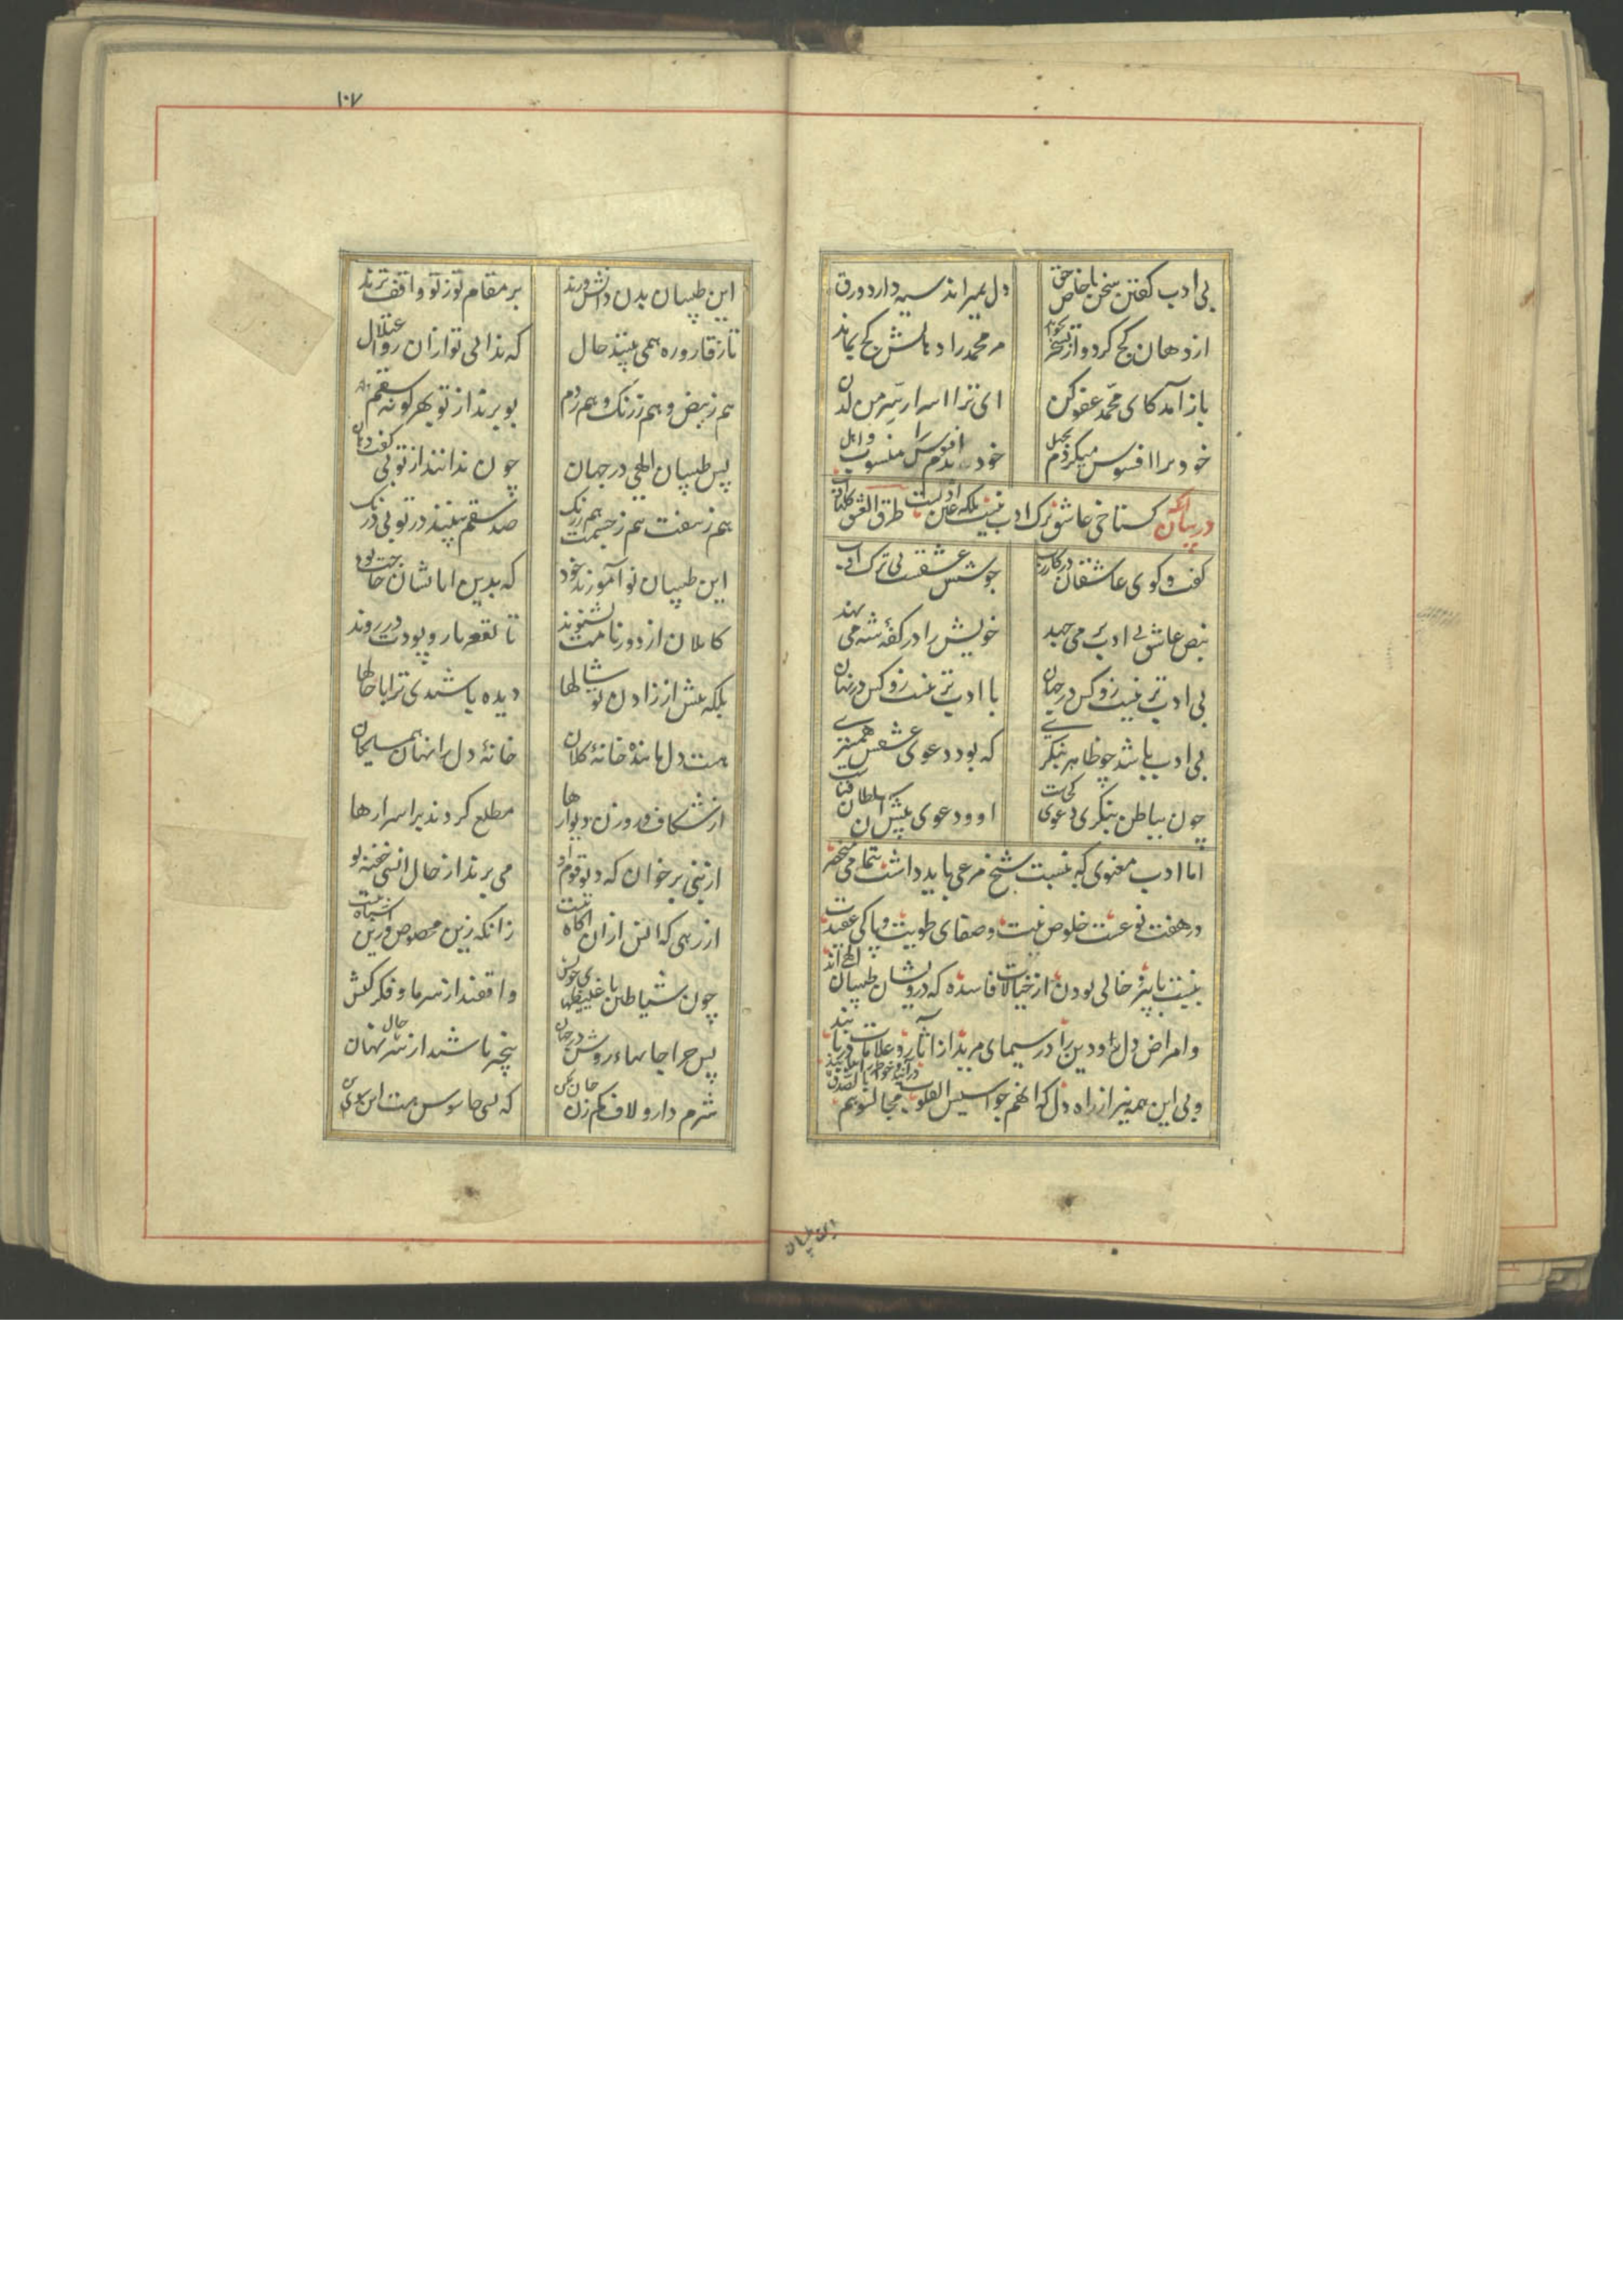 بی ادب گفتن سخن با خاص حق
دل بمیراند سیه دارد ورق
از دهان کج کرد و از تسخر بخواند
مر محمد را دهانش کج بماند
باز آمد کای محمد عفو کن
ای ترا اسرار سر من لدن
خود مرا افسوس میکردم بجهل
خود بدم افسوس را منسوب و اهل
در بیان آنکه گستاخی عاشق ترک ادب نیست بلکه عین ادبست طرق العشق کلها آداب
گفت و گوی عاشقان در کار رب
جوشش عشقست بی ترک ادب
نبض عاشق بی ادب بر می جهد
خویش را در کفهٔ شه می نهد
بی ادب تر نیست زو کس در جهان
با ادب تر نیست زو کس در نهان
بی ادب باشد چو ظاهر بنگری
که بود دعوی عشقش همسری
چون بباطن بنگری دعوی کجاست
او و دعوی پیش آن سلطان فناست
اما ادب معنوی که بنسبت شیخ مرعی باید داشت بتمامی منحصر
در هفت نوعست خلوص نیت و صفای طویت و پاکی عقیدت
خالی بودن از خیالات فاسده که درویشان طبیبان الهی اند
و امراض دل و دین را در سیمای مرید از آثار و علامات دریابند
و بی این همه نیز از راه دل که انهم جواسیس القلوب فجالسوهم بالصدق
این طبیبان
۱۰۷
این طبیبان بدن دانش ورند
بر مقام تو ز تو واقف ترند
تا ز قاروره همی بینند حال
که ندانی تو از آن رو اعتلال
هم ز نبض و هم ز رنگ و هم ز دم
بو برند از تو بهر گونه سقم
پس طبیبان الهی در جهان
چون ندانند از تو بی گفت دهان
هم ز نبضت هم ز چشمت هم ز رنگ
صد سقم بینند در تو بی درنگ
این طبیبان نو آموزند خود
که بدین آیاتشان حاجت بود
کاملان از دور نامت بشنوند
تا بقعر تار و پودت در روند
بلکه پیش از زادن تو سالها
دیده باشندی ترا با حالها
هست دل مانندهٔ خانهٔ کلان
خانهٔ دل را نهان همسایگان
از شکاف و روزن دیوارها
مطلع گردند بر اسرارها
از نبی بر خوان که دیو و قوم او
می برند از حال انسی خفیه بو
از رهی که انس از آن آگاه نیست
زانکه زین محسوس و زین اشباه نیست
چون شیاطین با غلیظیهای خویش
واقفند از سر ما و فکر و کیش
پس چرا جانهاء روشن در جهان
بیخبر باشند از حال نهان
شرم دار و لاف کم زن جان مکن
که بسی جاسوس هست آن سوی تن